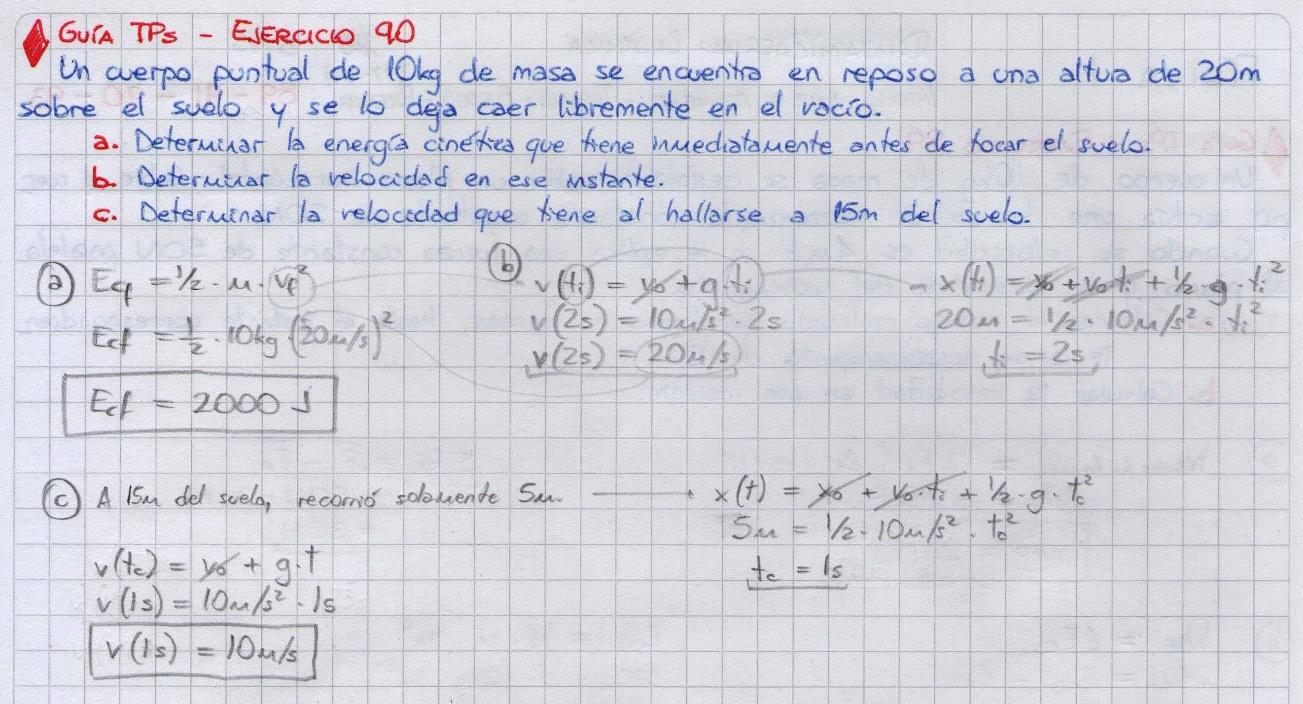 GUÍA TPs - EJERCICIO 90
Un cuerpo puntual de 10kg de masa se encuentra en reposo a una altura de 20m
sobre el suelo y se lo deja caer libremente en el vacío.
a. Determinar la energía cinética que tiene inmediatamente antes de tocar el suelo.
b. Determinar la velocidad en ese instante.
c. Determinar la velocidad que tiene al hallarse a 15m del suelo.
a Ecf = 1/2 · m · vf²
Ecf = 1/2 · 10kg · (20m/s)²
Ecf = 2000 J
b v(ti) = v0 + g·ti
v(2s) = 10m/s² · 2s
v(2s) = 20m/s
x(ti) = x0 + v0·ti + 1/2 · g · ti²
20m = 1/2 · 10m/s² · ti²
ti = 2s
c A 15m del suelo, recorrió solamente 5m.
x(t) = x0 + v0·ti + 1/2 · g · tc²
5m = 1/2 · 10m/s² · tc²
tc = 1s
v(tc) = v0 + g·t
v(1s) = 10m/s² · 1s
v(1s) = 10m/s